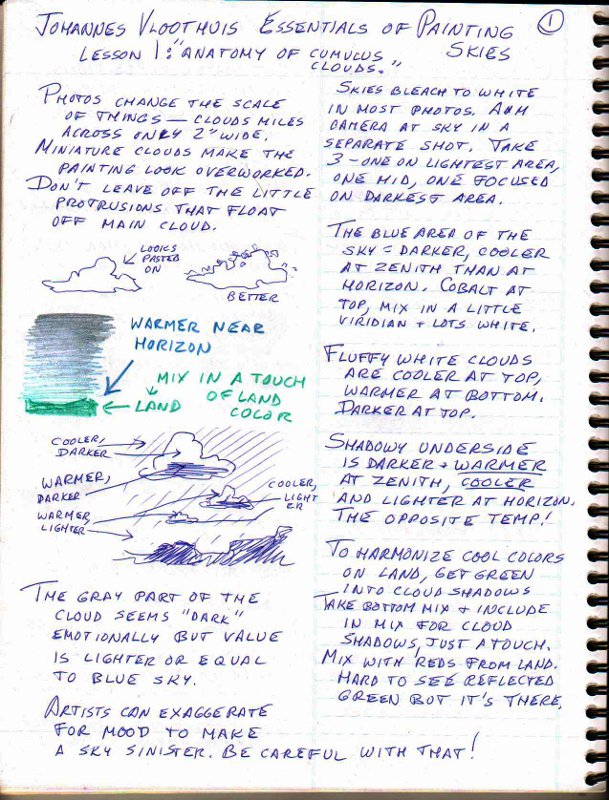 JOHANNES VLOOTHUIS ESSENTIALS OF PAINTING SKIES
①
LESSON 1: "ANATOMY OF CUMULUS CLOUDS."
PHOTOS CHANGE THE SCALE
OF THINGS — CLOUDS MILES
ACROSS ONLY 2" WIDE.
MINIATURE CLOUDS MAKE THE
PAINTING LOOK OVERWORKED.
DON'T LEAVE OFF THE LITTLE
PROTRUSIONS THAT FLOAT
OFF MAIN CLOUD.
LOOKS
PASTED
ON
BETTER
WARMER NEAR
HORIZON
MIX IN A TOUCH
OF LAND
COLOR
LAND
COOLER,
DARKER
WARMER,
DARKER
COOLER,
LIGHT
ER
WARMER,
LIGHTER
THE GRAY PART OF THE
CLOUD SEEMS "DARK"
EMOTIONALLY BUT VALUE
IS LIGHTER OR EQUAL
TO BLUE SKY.
ARTISTS CAN EXAGGERATE
FOR MOOD TO MAKE
A SKY SINISTER. BE CAREFUL WITH THAT!
SKIES BLEACH TO WHITE
IN MOST PHOTOS. AIM
CAMERA AT SKY IN A
SEPARATE SHOT. TAKE
3 - ONE ON LIGHTEST AREA,
ONE MID, ONE FOCUSED
ON DARKEST AREA.
THE BLUE AREA OF THE
SKY = DARKER, COOLER
AT ZENITH THAN AT
HORIZON. COBALT AT
TOP, MIX IN A LITTLE
VIRIDIAN + LOTS WHITE.
FLUFFY WHITE CLOUDS
ARE COOLER AT TOP,
WARMER AT BOTTOM.
DARKER AT TOP.
SHADOWY UNDERSIDE
IS DARKER + WARMER
AT ZENITH, COOLER
AND LIGHTER AT HORIZON.
THE OPPOSITE TEMP!
TO HARMONIZE COOL COLORS
ON LAND, GET GREEN
INTO CLOUD SHADOWS
TAKE BOTTOM MIX + INCLUDE
IN MIX FOR CLOUD
SHADOWS, JUST A TOUCH.
MIX WITH REDS FROM LAND.
HARD TO SEE REFLECTED
GREEN BUT IT'S THERE.